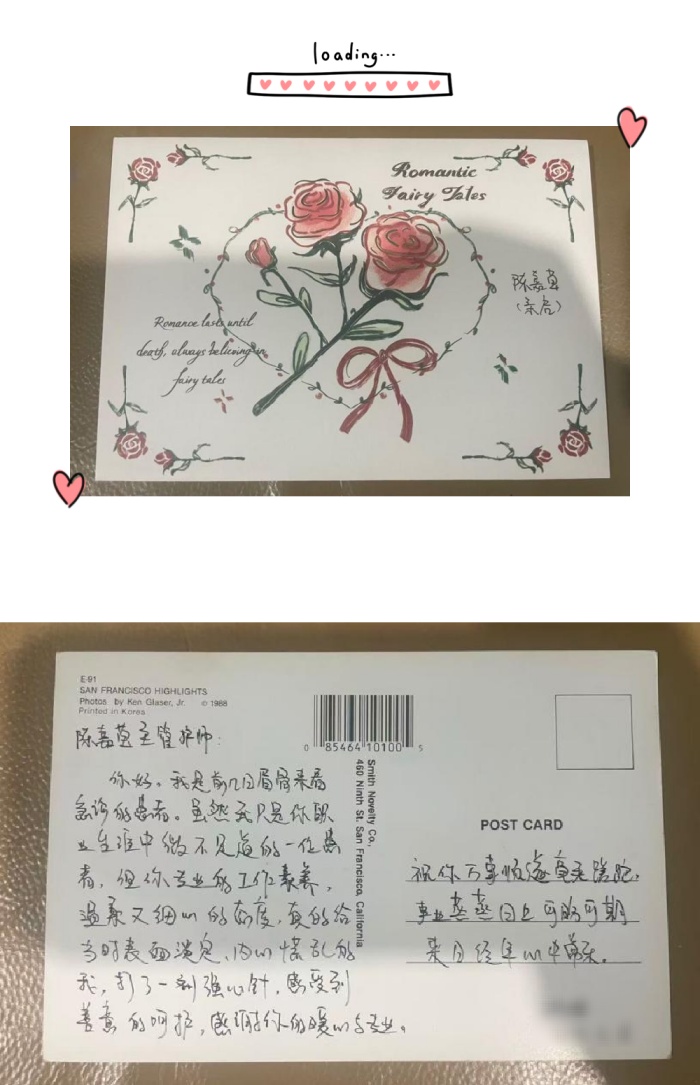 loading...
Romantic
Fairy Tales
陈嘉
(亲启)
Romance lasts until
death, always believing in
fairy tales
E-91
SAN FRANCISCO HIGHLIGHTS
Photos by Ken Glaser, Jr. © 1988
Printed in Korea
0 85464 10100 5
Smith Novelty Co.,
460 Ninth St. San Francisco, California
陈嘉主管护师:
你好。我是前几日眉骨来看
急诊的患者。虽然我只是你职
业生涯中微不足道的一位患
者,但你专业的工作素养,
温柔又细心的态度,真的给
当时表面淡定、内心慌乱的
我,打了一剂强心针,感受到
善意的呵护,感谢你的暖心与专业。
POST CARD
祝你万事顺遂毫无蹉跎,
事业蒸蒸日上可盼可期
来日经年心中常乐。